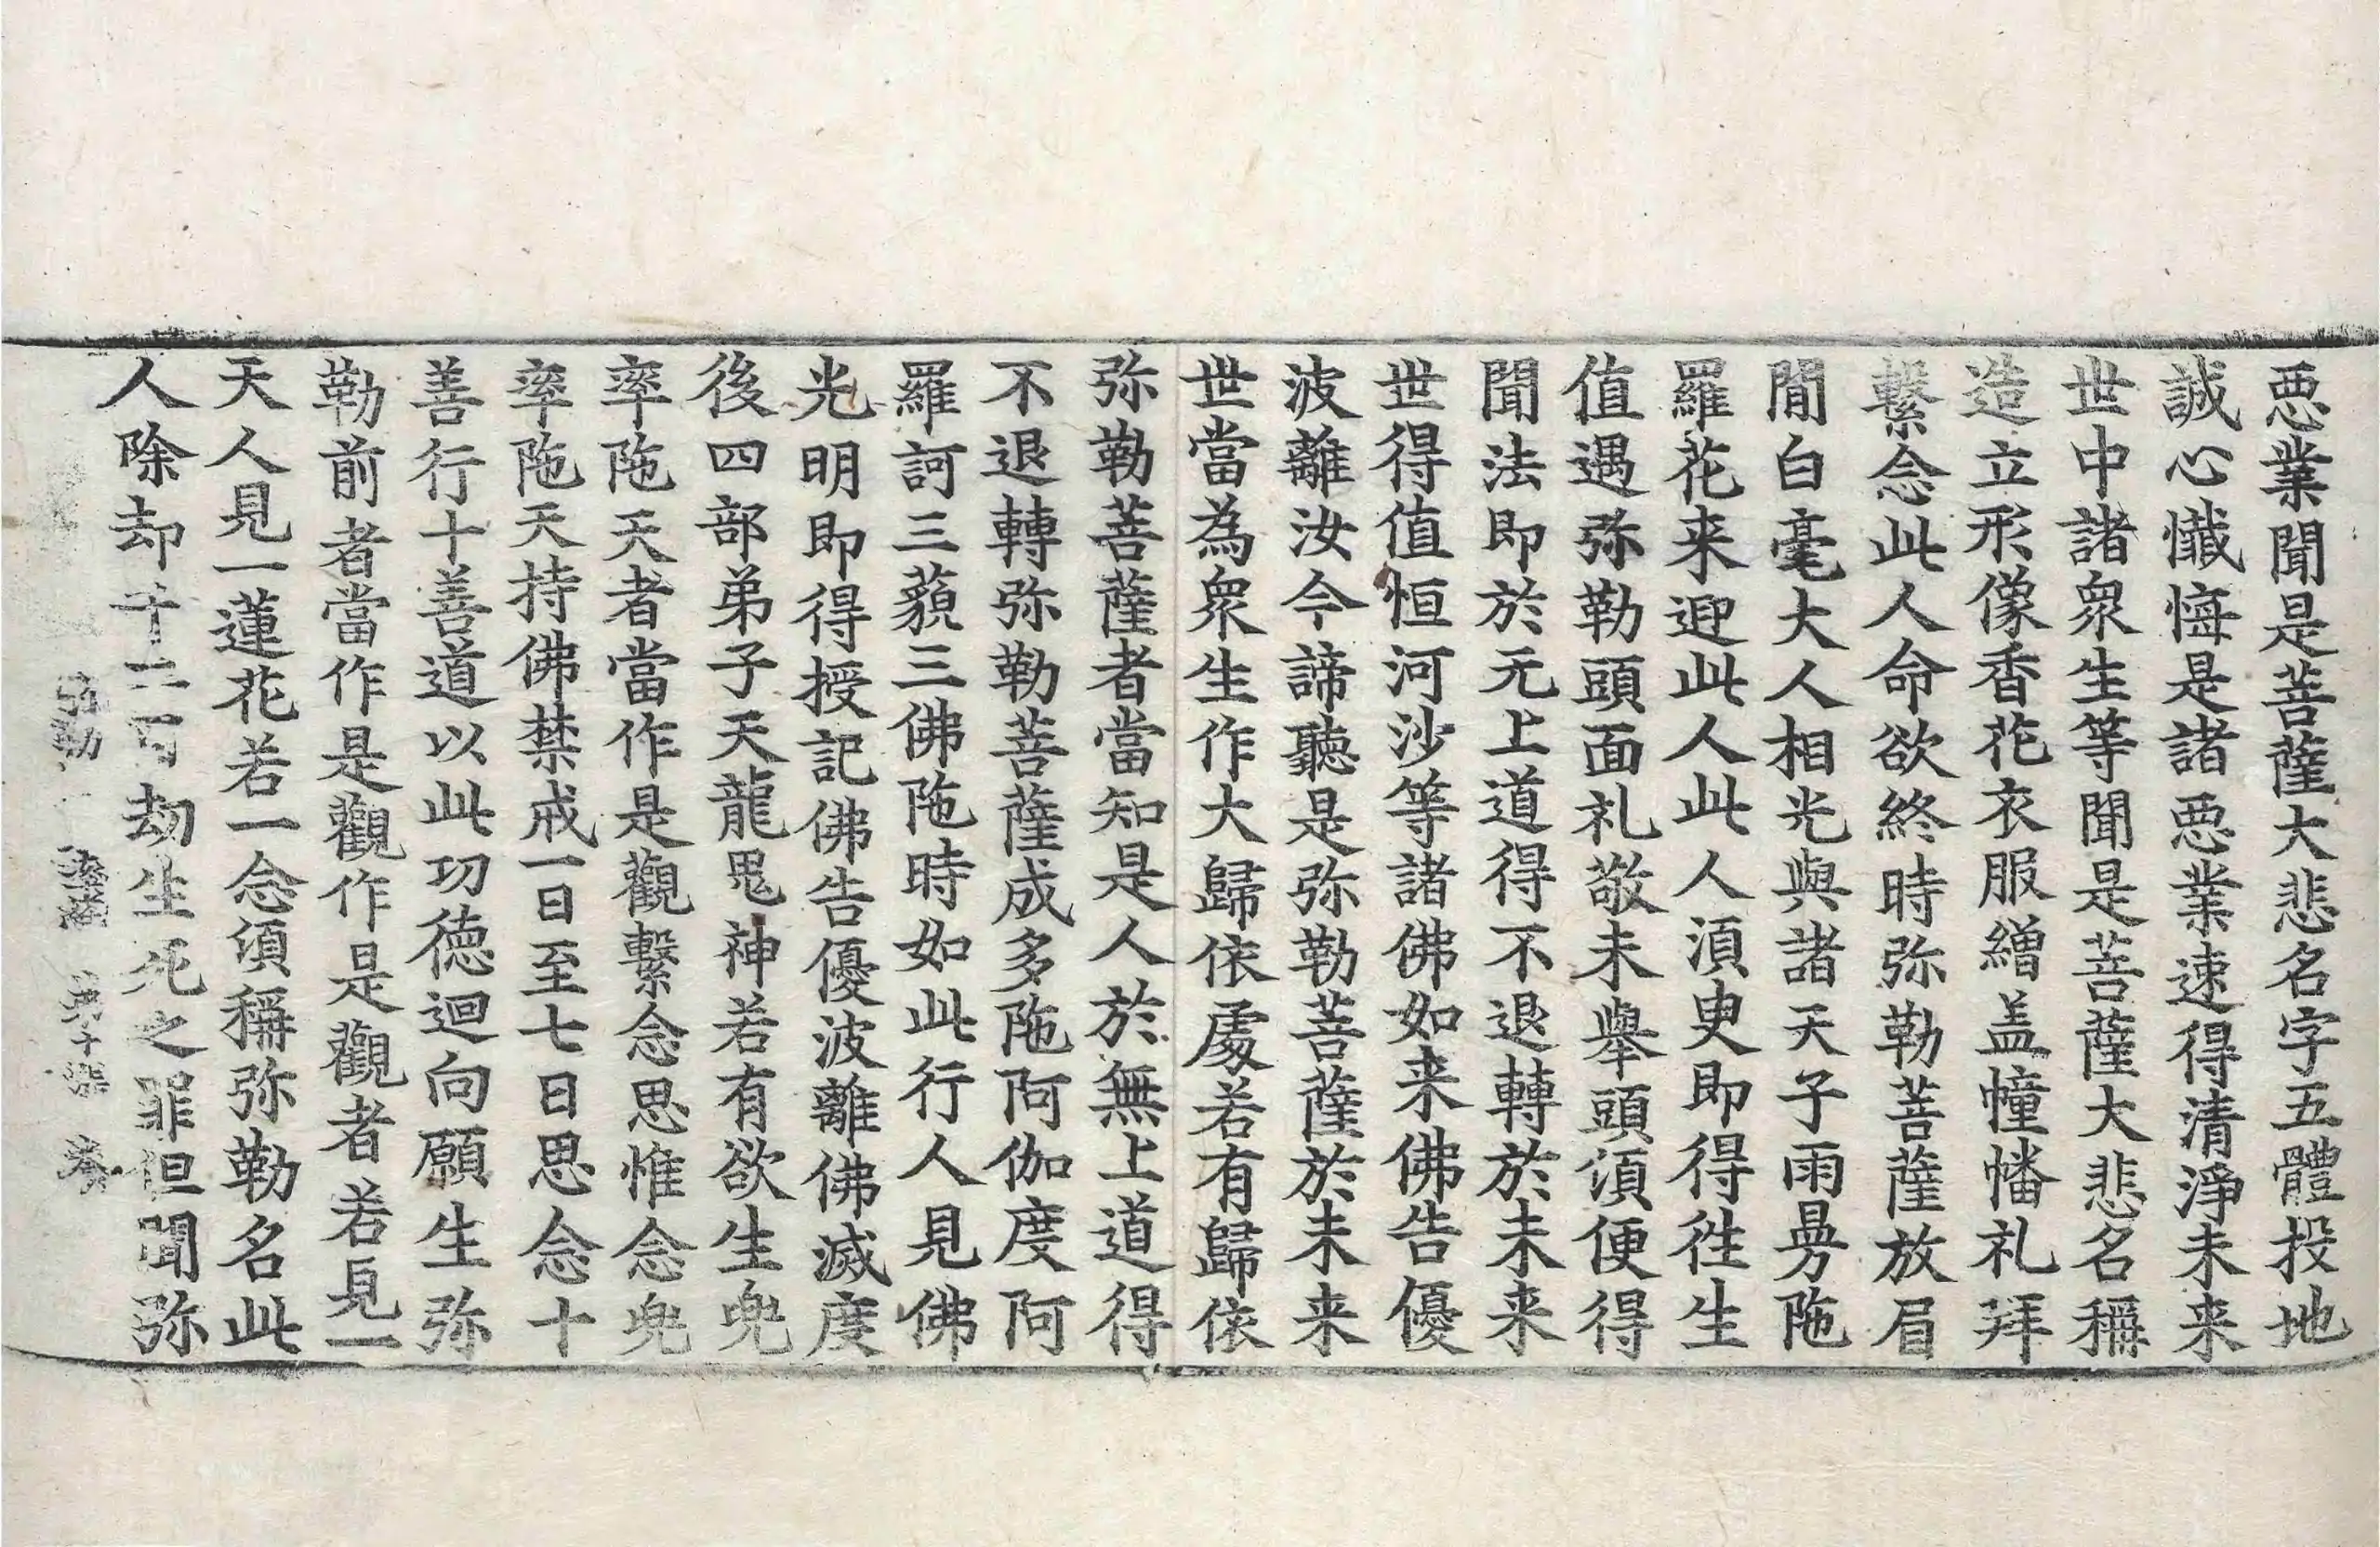 悪業聞是菩薩大悲名字五體投地
誠心懺悔是諸悪業速得清淨未来
世中諸衆生等聞是菩薩大悲名稱
造立形像香花衣服繒盖幢幡礼拜
繫念此人命欲終時弥勒菩薩放眉
間白毫大人相光與諸天子雨曼陁
羅花来迎此人此人湏臾即得徃生
值遇弥勒頭面礼敬未舉頭湏便得
聞法即於无上道得不退轉於未来
世得值恒河沙等諸佛如来佛告優
波離汝今諦聽是弥勒菩薩於未来
世當為衆生作大歸依處若有歸依
弥勒菩薩者當知是人於無上道得
不退轉弥勒菩薩成多陁阿伽度阿
羅訶三藐三佛陁時如此行人見佛
光明即得授記佛告優波離佛滅度
後四部弟子天龍鬼神若有欲生兜
率陁天者當作是觀繫念思惟念兜
率陁天持佛禁戒一日至七日思念十
善行十善道以此功德迴向願生弥
勒前者當作是觀作是觀者若見一
天人見一蓮花若一念湏稱弥勒名此
人除却千二百劫生死之罪但聞弥
弥勒